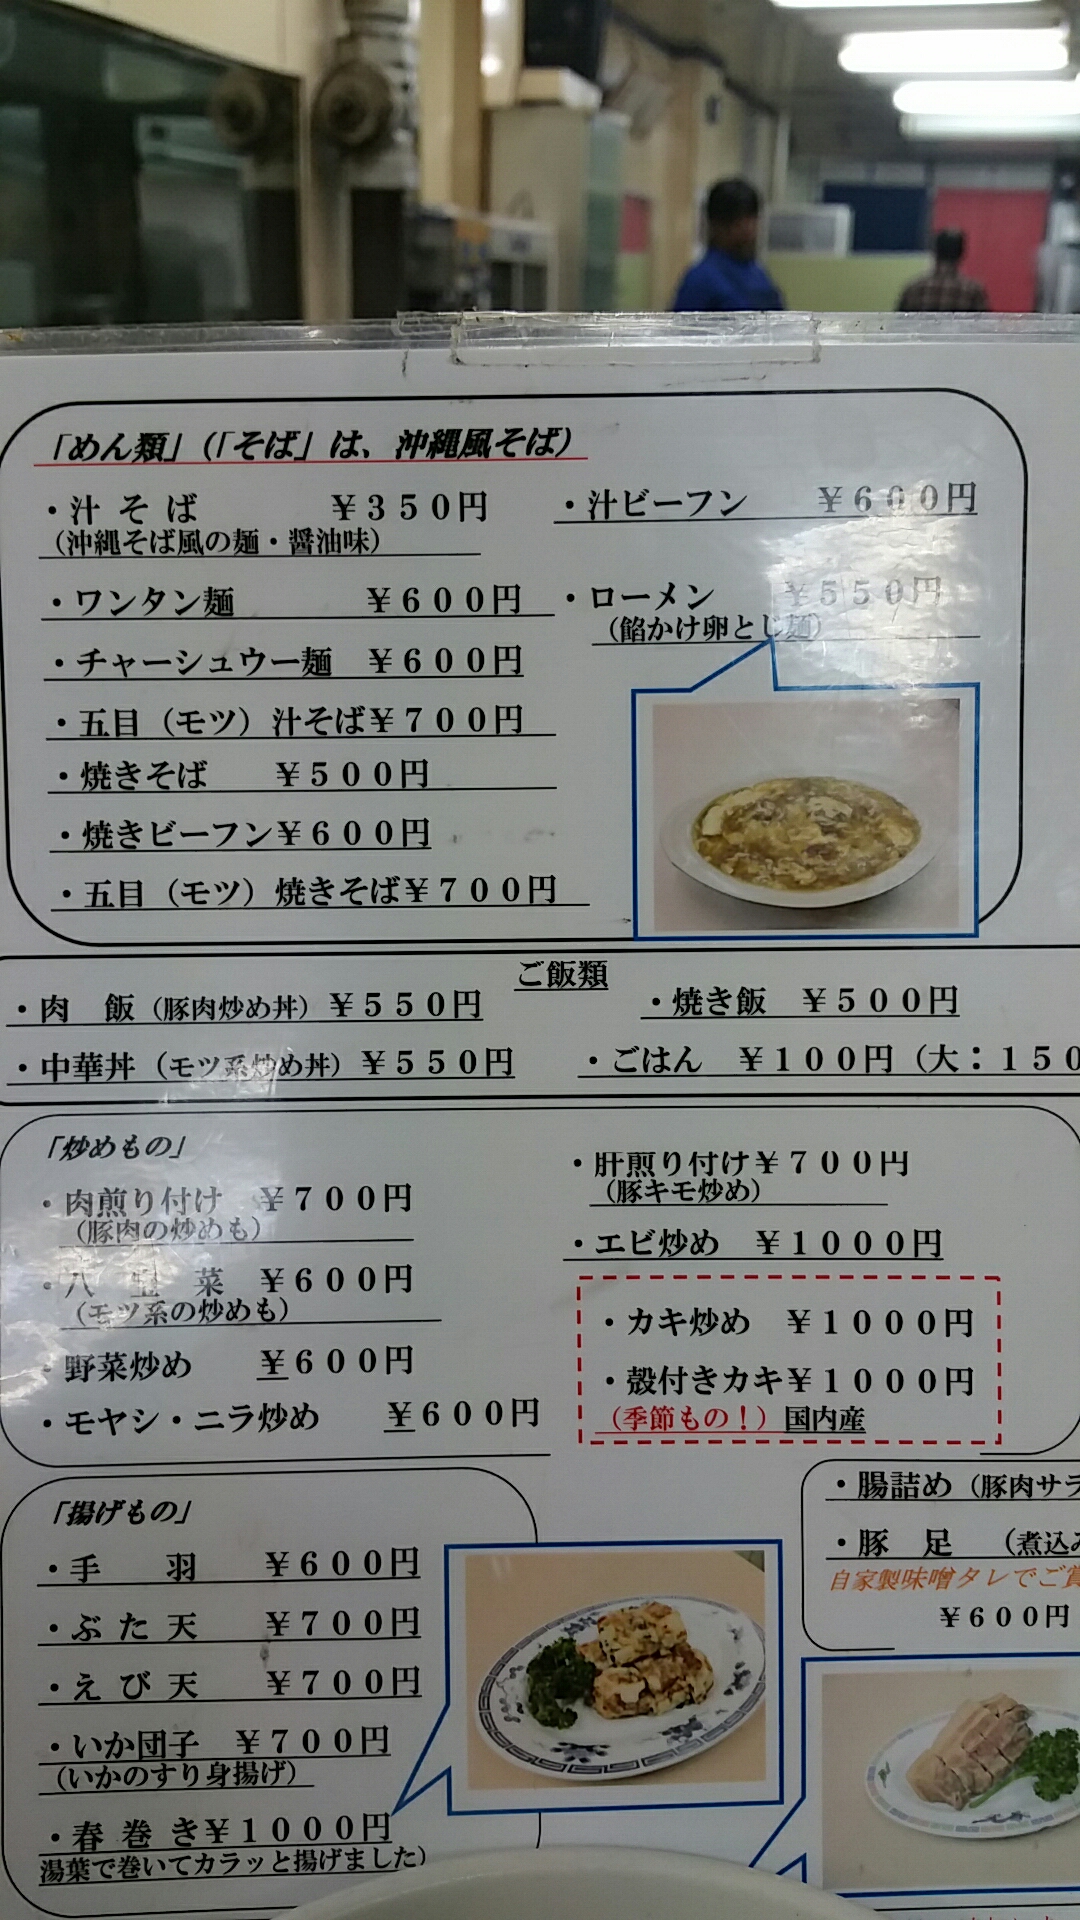 「めん類」（「そば」は、沖縄風そば）
・汁そば ￥３５０円
（沖縄そば風の麺・醤油味）
・ワンタン麺 ￥６００円
・チャーシュウー麺 ￥６００円
・五目（モツ）汁そば￥７００円
・焼きそば ￥５００円
・焼きビーフン￥６００円
・五目（モツ）焼きそば￥７００円
・汁ビーフン ￥６００円
・ローメン ￥５５０円
（餡かけ卵とじ麺）
ご飯類
・肉 飯（豚肉炒め丼）￥５５０円
・焼き飯 ￥５００円
・中華丼（モツ系炒め丼）￥５５０円
・ごはん ￥１００円（大：１５０
「炒めもの」
・肉煎り付け ￥７００円
（豚肉の炒めも）
・八 宝 菜 ￥６００円
（モツ系の炒めも）
・野菜炒め ￥６００円
・モヤシ・ニラ炒め ￥６００円
・肝煎り付け￥７００円
（豚キモ炒め）
・エビ炒め ￥１０００円
・カキ炒め ￥１０００円
・殻付きカキ￥１０００円
（季節もの！）国内産
「揚げもの」
・手 羽 ￥６００円
・ぶた天 ￥７００円
・えび天 ￥７００円
・いか団子 ￥７００円
（いかのすり身揚げ）
・春巻き￥１０００円
湯葉で巻いてカラッと揚げました）
・腸詰め（豚肉サラ
・豚 足 （煮込み
自家製味噌タレでご賞
￥６００円